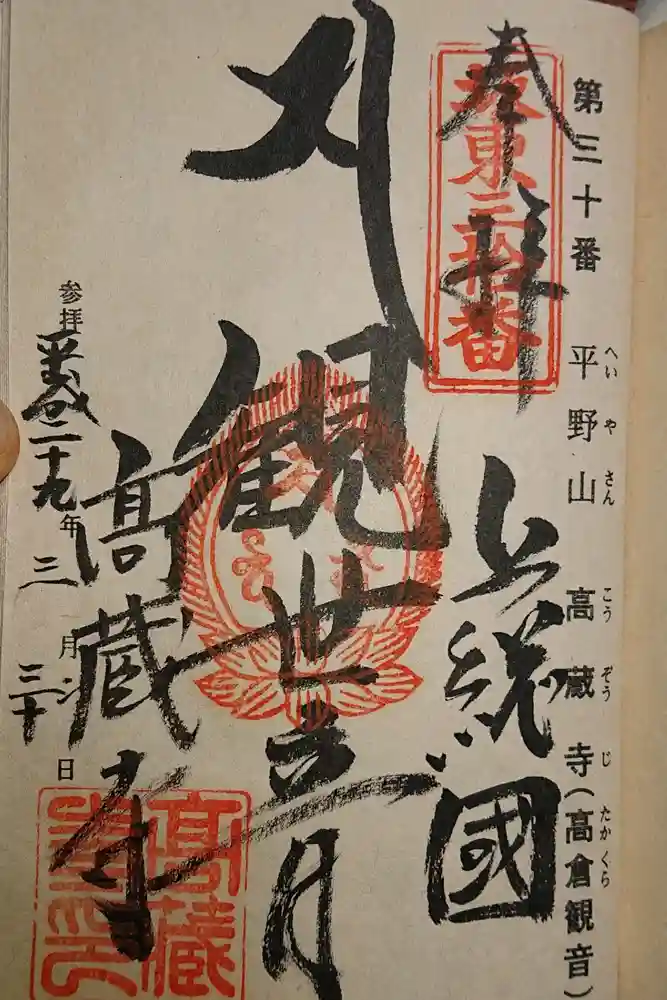 第三十番 平野山 高蔵寺（高倉観音）
へいやさん こうぞうじ たかくら
奉拝
坂東三拾番
上総國
観世音
高蔵寺
参拝 平成二十九年 三月 三十日
高蔵